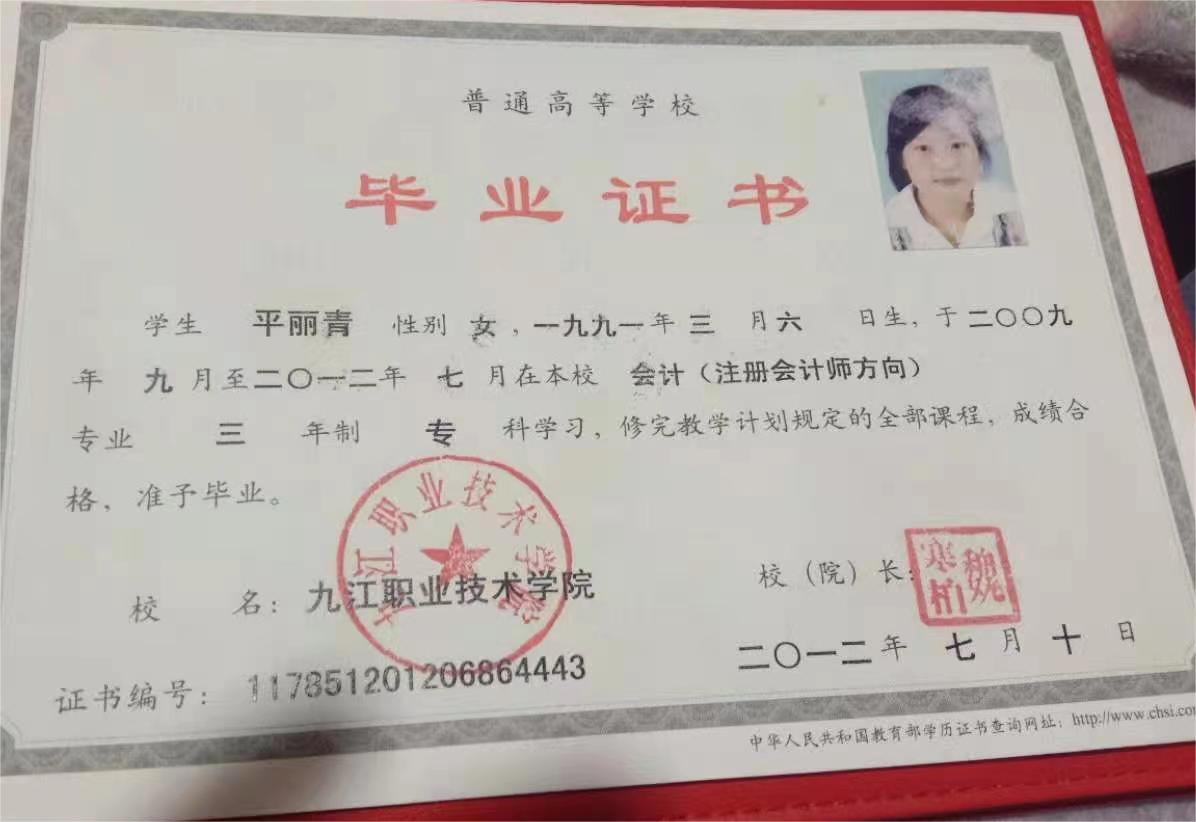 普通高等学校
毕业证书
学生 平丽青 性别 女，一九九一年 三 月六 日生，于二〇〇九
年 九 月至二〇一二年 七 月在本校 会计（注册会计师方向）
专业 三 年制 专 科学习，修完教学计划规定的全部课程，成绩合
格，准予毕业。
九江职业技术学院
校 名：九江职业技术学院
校（院）长：
魏寒柏
证书编号：117851201206864443
二〇一二年 七 月 十 日
中华人民共和国教育部学历证书查询网址：http://www.chsi.com